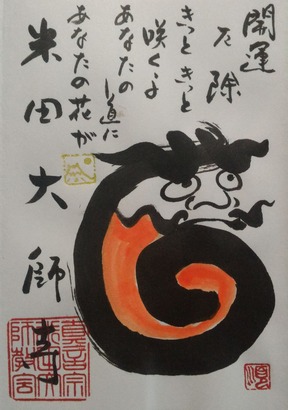 開運
厄除
きっと きっと
咲くよ
あなたの
道に
あなたの花が
米田大師
寿
真言宗
師教会